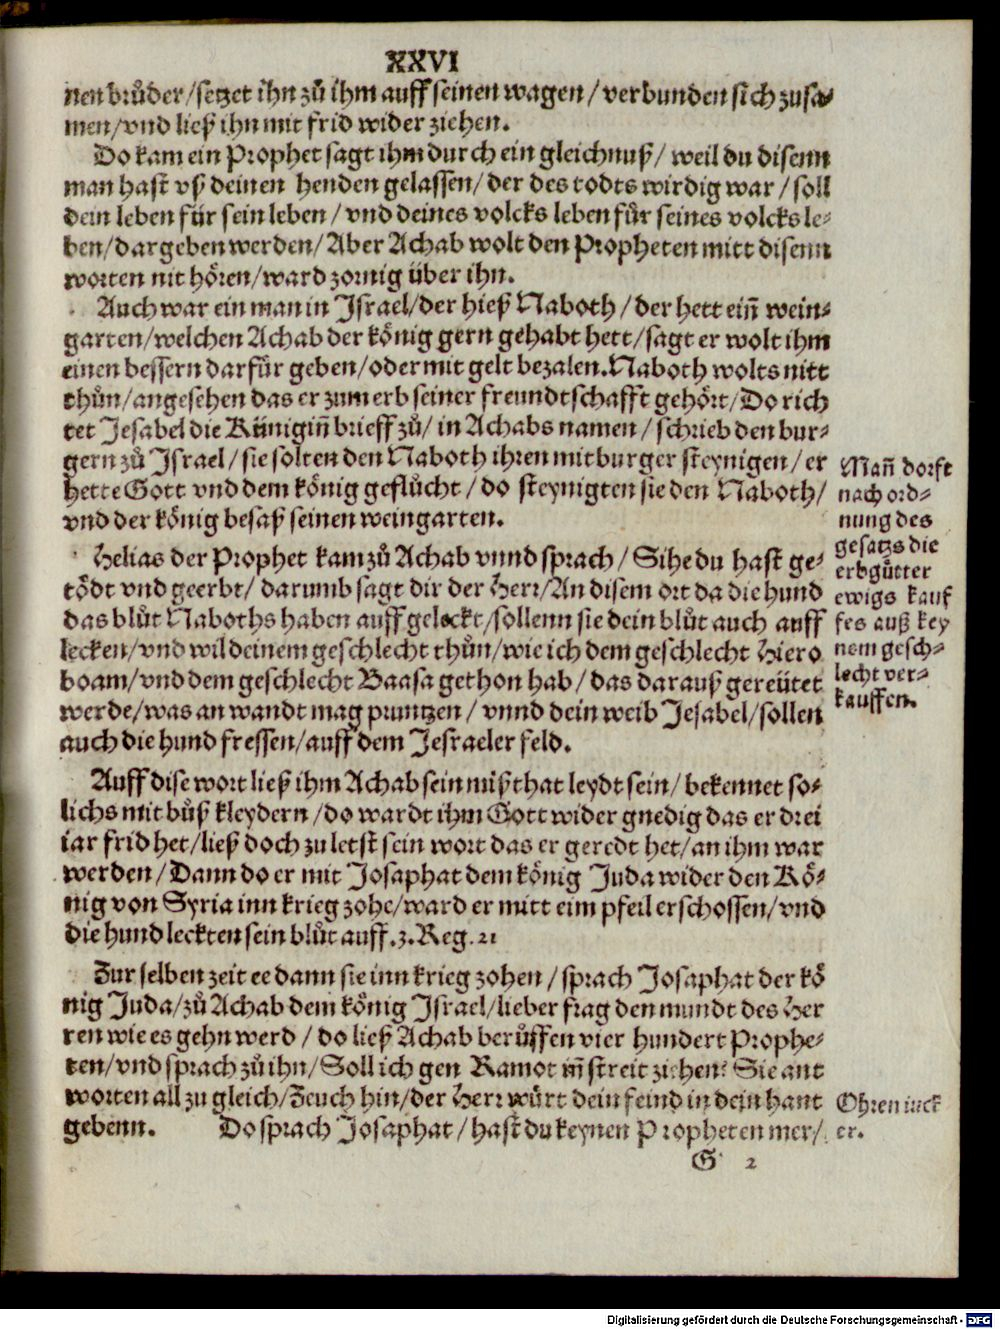 XXVI
nen brůder/setzet ihn zů ihm auff seinen wagen/verbunden sich zusa-
men/vnd ließ ihn mit frid wider ziehen.
Do kam ein Prophet sagt ihm durch ein gleichnuß/ weil du disenn
man hast vß deinen henden gelassen/ der des todts wirdig war/ soll
dein leben für sein leben/ vnd deines volcks leben für seines volcks le-
ben/dargeben werden/ Aber Achab wolt den Propheten mitt disenn
worten nit hören/ward zornig über ihn.
Auch war ein man in Israel/der hieß Naboth/der hett eiñ wein-
garten/welchen Achab der könig gern gehabt hett/sagt er wolt ihm
einen bessern darfür geben/oder mit gelt bezalen. Naboth wolts nitt
thůn/angesehen das er zum erb seiner freundtschafft gehört/Do rich
tet Jesabel die Küniginñ brieff zů/ in Achabs namen/ schrieb den bur-
gern zů Israel/ sie solten den Naboth ihren mitburger steynigen/ er
hette Gott vnd dem könig geflucht/ do steynigten sie den Naboth/
vnd der könig besaß seinen weingarten.
Helias der Prophet kam zů Achab vnnd sprach/ Sihe du hast ge-
tödt vnd geerbt/ darumb sagt dir der Herr/An disem ort da die hund
das blůt Naboths haben auff geleckt/sollenn sie dein blůt auch auff
lecken/vnd wil deinem geschlecht thůn/wie ich dem geschlecht Hiero
boam/vnd dem geschlecht Baasa gethon hab/das darauß gereütet
werde/was an wandt mag pruntzen/ vnnd dein weib Jesabel/sollen
auch die hund fressen/auff dem Jesraeler feld.
Auff dise wort ließ ihm Achab sein mißthat leydt sein/ bekennet so-
lichs mit bůß kleydern/do wardt ihm Gott wider gnedig das er drei
iar frid het/ließ doch zu letst sein wort das er geredt het/an ihm war
werden/Dann do er mit Josaphat dem könig Juda wider den Kö-
nig von Syria inn krieg zohe/ward er mitt eim pfeil erschossen/vnd
die hund leckten sein blůt auff.3.Reg.21
Zur selben zeit ee dann sie inn krieg zohen/sprach Josaphat der kö
nig Juda/zů Achab dem könig Israel/lieber frag den mundt des Her
ren wie es gehn werd/ do ließ Achab berůffen vier hundert Prophe-
ten/vnd sprach zů ihn/Soll ich gen Ramot iñ streit ziehen? Sie ant
worten all zu gleich/Zeuch hin/der Herr würt dein feind in dein hant
gebenn. Do sprach Josaphat/hast du keynen Propheten mer/
G 2
Mañ dorft
nach ord-
nung des
gesatzs die
erbgůtter
ewigs kauf
fes auß key
nem gesch-
lecht ver-
kauffen.
Ohren iuck
er.
Digitalisierung gefördert durch die Deutsche Forschungsgemeinschaft - DFG